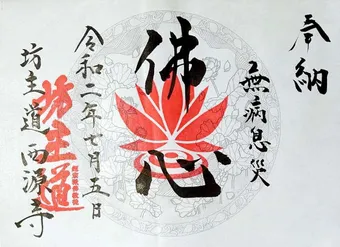 奉納
無病息災
佛心
令和二年七月五日
坊主道
坊主道 西源寺